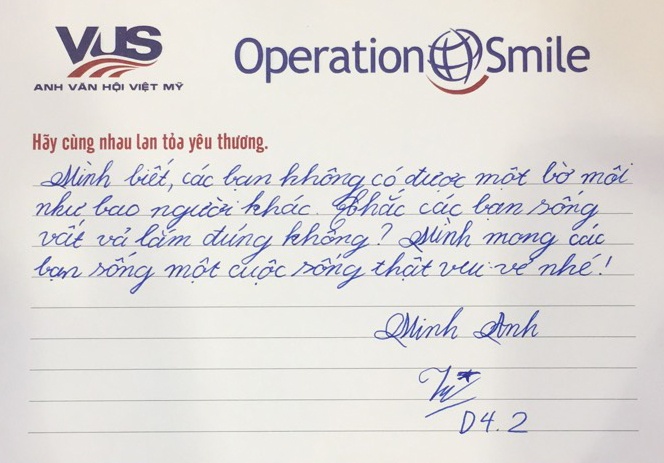 VUS
Operation Smile
ANH VĂN HỘI VIỆT MỸ
Hãy cùng nhau lan tỏa yêu thương.
Mình biết, các bạn không có được một bờ môi
như bao người khác. Chắc các bạn sống
vất vả lắm đúng không? Mình mong các
bạn sống một cuộc sống thật vui vẻ nhé!
Minh Anh
D4.2